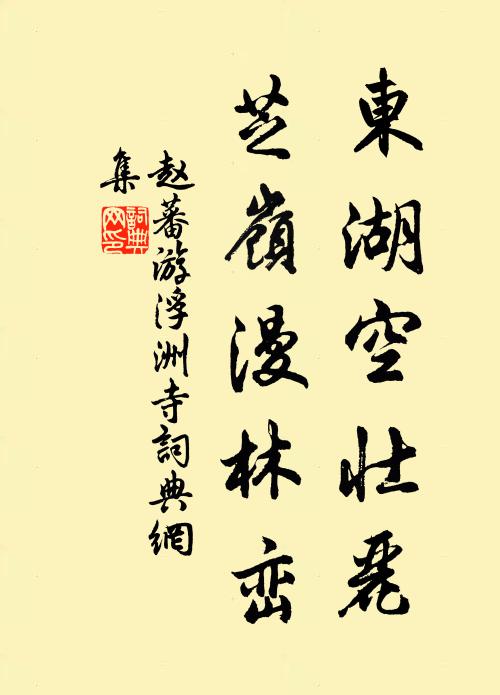 東湖空壮麗
芝嶺漫林峦
赵蕃游浮洲寺詞典網
集
詞典
网印